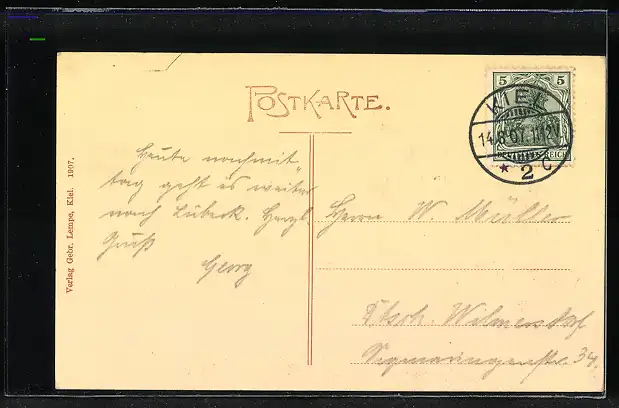 POSTKARTE.
5 5
KIEL
14.8.07. 11-12V
* 2 C
Heute nachmit
tag geht es weiter
nach Lübeck. Herzl
Gruß
Georg
Herrn W. Müller
Dtsch. Wilmersdorf
Sigmaringenstr. 34.
Verlag Gebr. Lempe, Kiel. 1907.